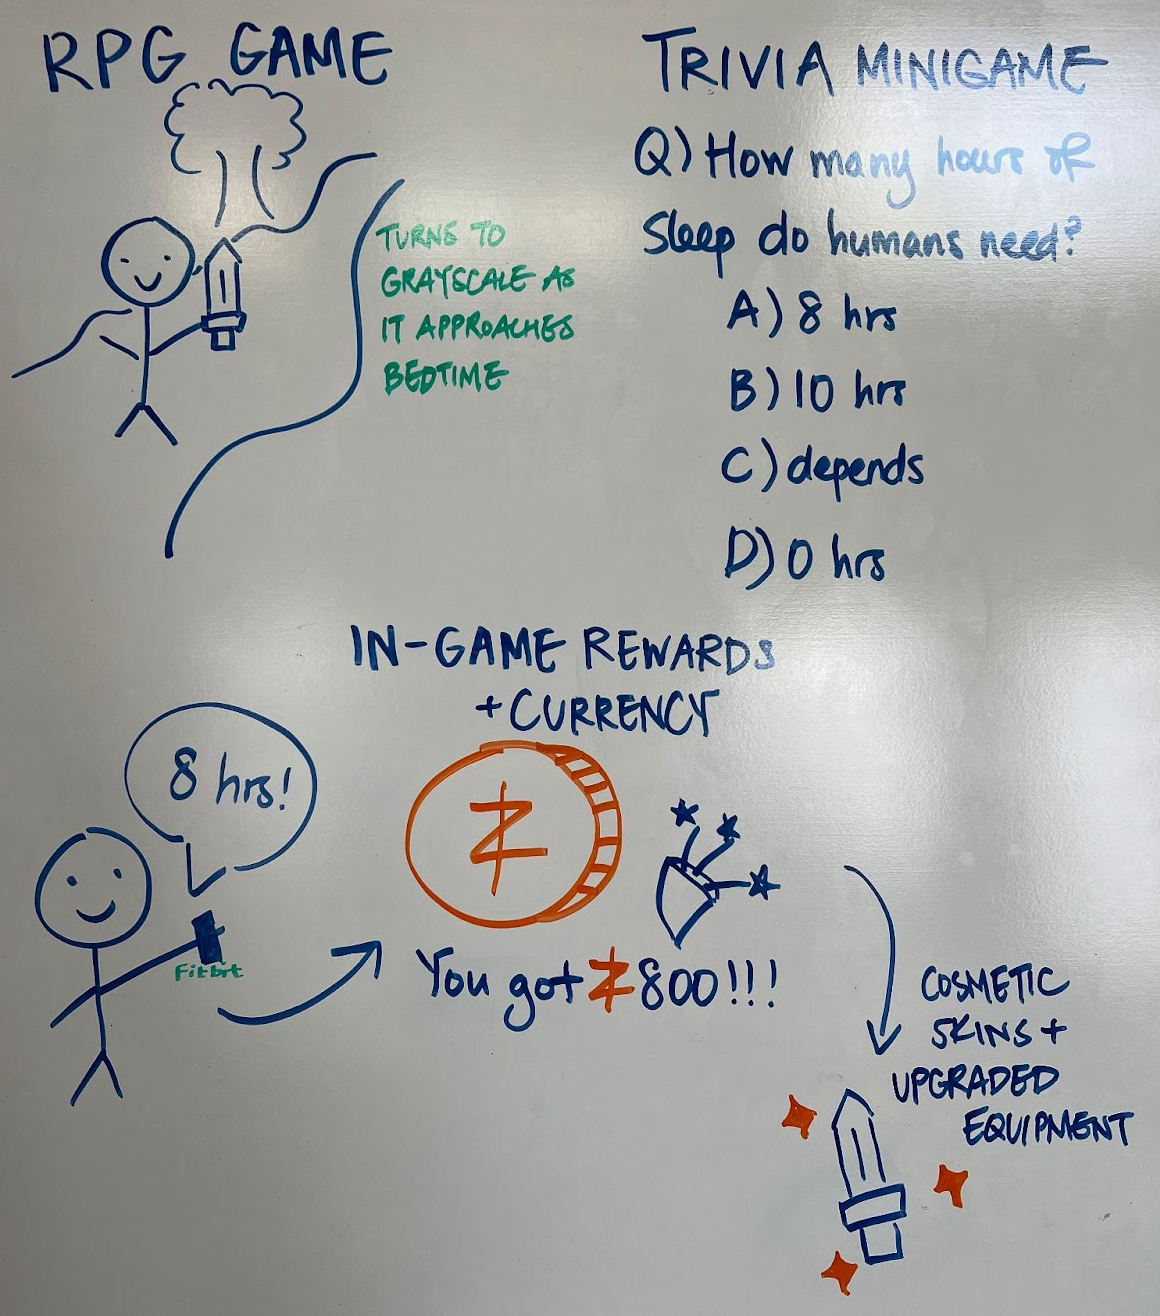 RPG GAME
TURNS TO
GRAYSCALE AS
IT APPROACHES
BEDTIME
TRIVIA MINIGAME
Q) How many hours of
Sleep do humans need?
A) 8 hrs
B) 10 hrs
C) depends
D) 0 hrs
IN-GAME REWARDS
+ CURRENCY
8 hrs!
Fitbit
Ƶ
You got Ƶ800!!!
COSMETIC
SKINS +
UPGRADED
EQUIPMENT